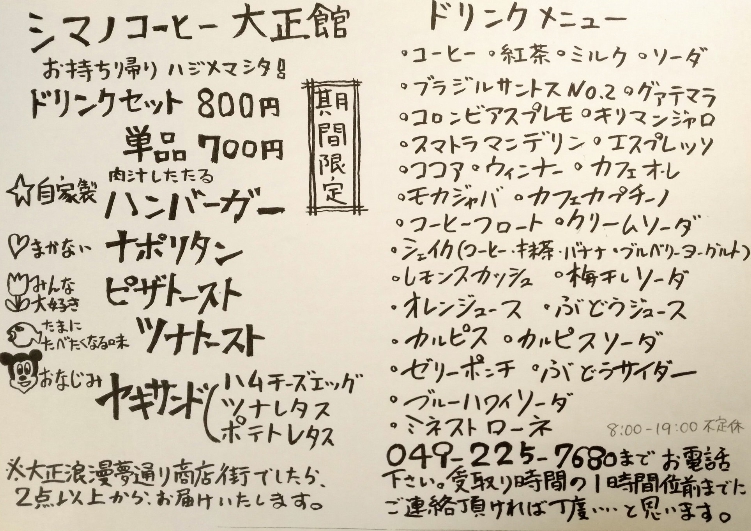 シマノコーヒー 大正館
お持ち帰り ハジメマシタ!
ドリンクセット 800円
単品 700円
期間限定
☆自家製 肉汁したたる
ハンバーガー
♡まかない ナポリタン
みんな大好き ピザトースト
たまにたべたくなる味 ツナトースト
おなじみ ヤキサンド
ハムチーズエッグ
ツナレタス
ポテトレタス
※大正浪漫夢通り商店街でしたら、
2点以上から、お届けいたします。
ドリンクメニュー
・コーヒー ・紅茶 ・ミルク ・ソーダ
・ブラジルサントスNO.2 ・グァテマラ
・コロンビアスプレモ ・キリマンジャロ
・スマトラマンデリン ・エスプレッソ
・ココア ・ウィンナー ・カフェオレ
・モカジャバ ・カフェカプチーノ
・コーヒーフロート ・クリームソーダ
・シェイク(コーヒー・抹茶・バナナ・ブルベリーヨーグルト)
・レモンスカッシュ ・梅干しソーダ
・オレンジュース ・ぶどうジュース
・カルピス ・カルピスソーダ
・ゼリーポンチ ・ぶどうサイダー
・ブルーハワイソーダ
・ミネストローネ
8:00-19:00 不定休
049-225-7680までお電話
下さい。受取り時間の1時間位前までに
ご連絡頂ければ丁度‥‥と思います。